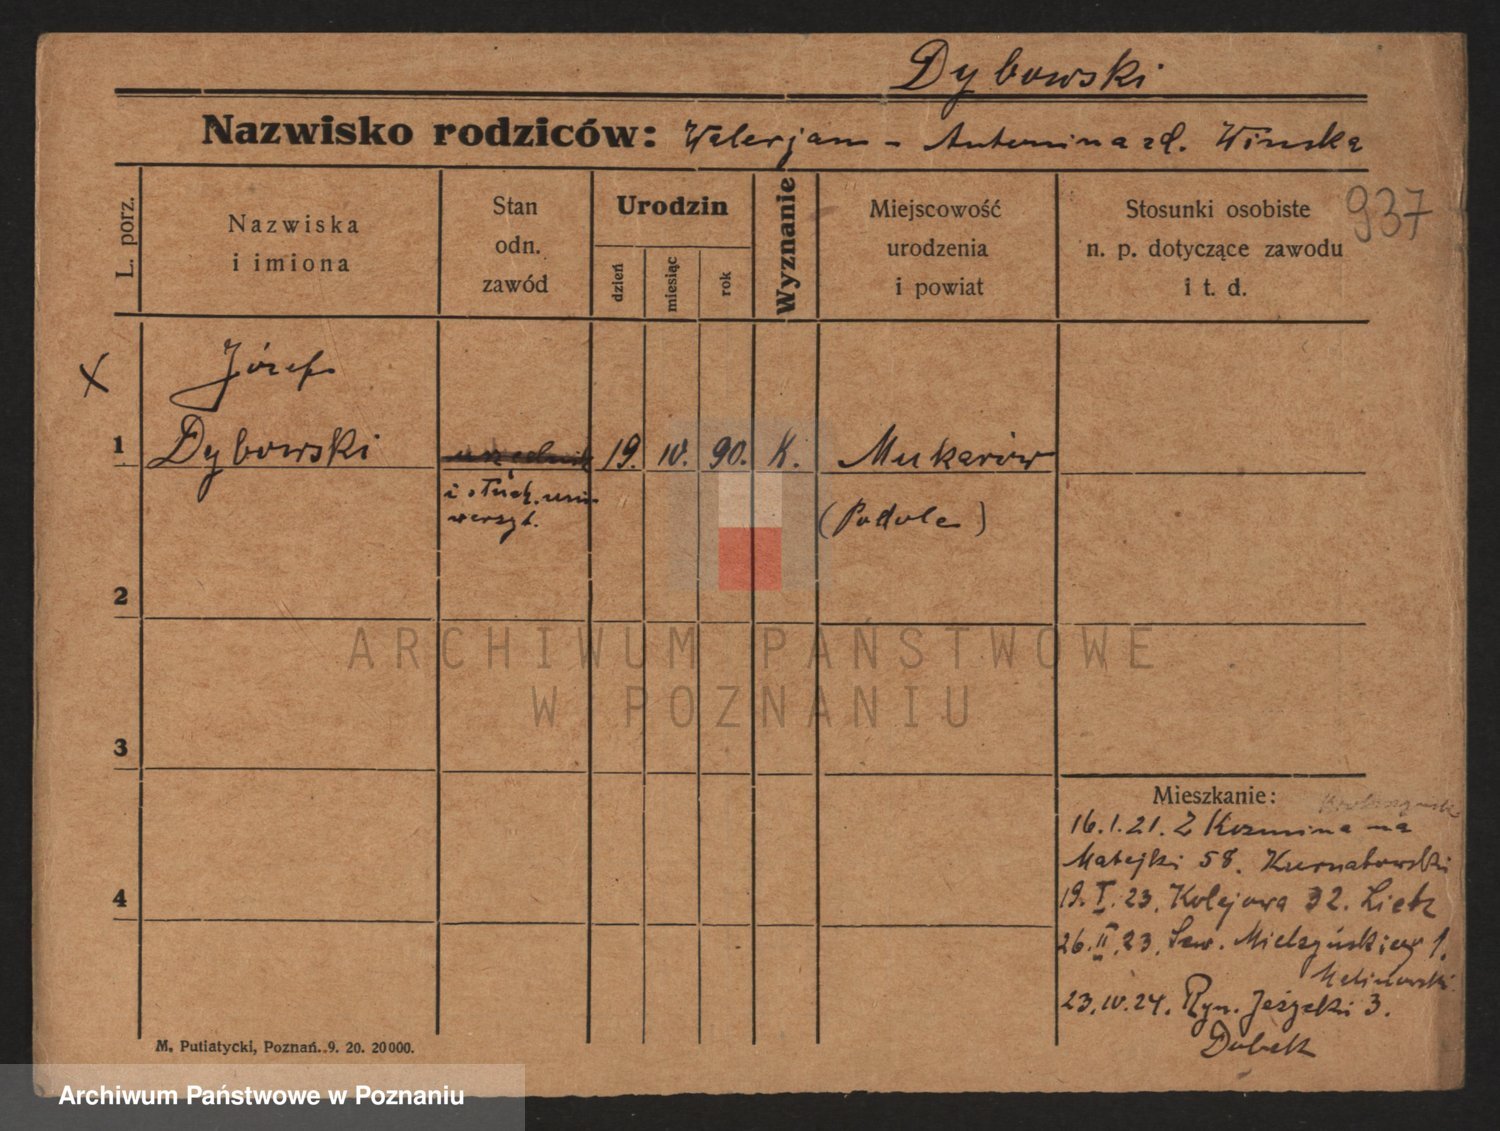 Dybowski
Nazwisko rodziców: Walerjan - Antonina zd. Wińska
L. porz.
Nazwiska
i imiona
Stan
odn.
zawód
Urodzin
dzień
miesiąc
rok
Wyznanie
Miejscowość
urodzenia
i powiat
Stosunki osobiste
n. p. dotyczące zawodu
i t. d.
937
X
Józef
1 Dybowski urzędnik 19. IV. 90. K. Mukarów
i słuch. uni-
wersyt.
(Podole)
2
3
4
Mieszkanie:
16.1.21. Z Kozmina na
Matejki 58. Kurnatowski
19.I.23. Kolejowa 32. Lietz
26.II.23. Sew. Mielżyńskiego 1.
Malinowski
23.IV.24. Ryn. Jeżycki 3.
Dubek
M. Putiatycki, Poznań. 9. 20. 20000.
ARCHIWUM PAŃSTWOWE
W POZNANIU
Archiwum Państwowe w Poznaniu